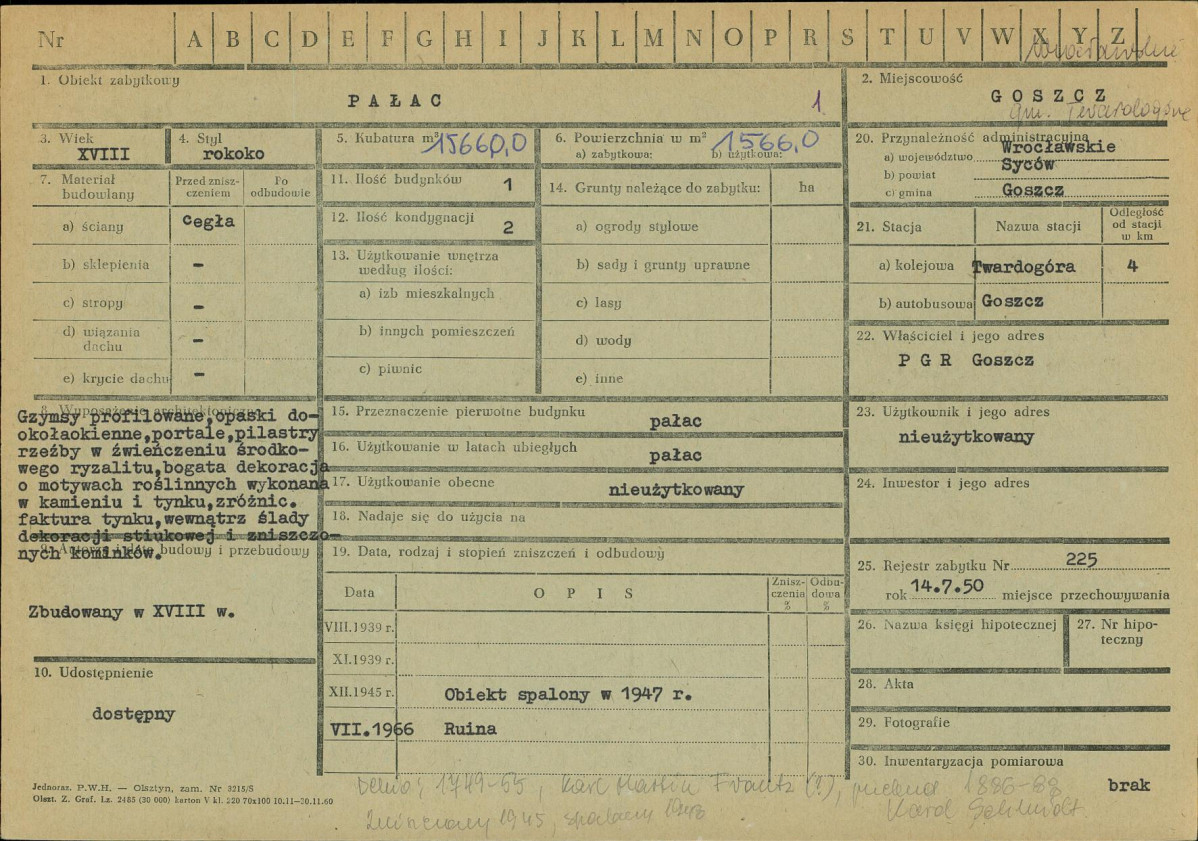 Nr A B C D E F G H I J K L M N O P R S T U V W X Y Z
1. Obiekt zabytkowy
PAŁAC
1
2. Miejscowość
GOSZCZ
gm. Twardogóra
3. Wiek
XVIII
4. Styl
rokoko
5. Kubatura m³
15660,0
6. Powierzchnia w m²
1566,0
a) zabytkowa: b) użytkowa:
7. Materiał budowlany
Przed znisz-
czeniem
Po
odbudowie
a) ściany
cegła
b) sklepienia
-
c) stropy
-
d) wiązania
dachu
-
e) krycie dachu
-
11. Ilość budynków
1
12. Ilość kondygnacji
2
13. Użytkowanie wnętrza
według ilości:
a) izb mieszkalnych
b) innych pomieszczeń
c) piwnic
14. Grunty należące do zabytku: ha
a) ogrody stylowe
b) sady i grunty uprawne
c) lasy
d) wody
e) inne
20. Przynależność administracyjna
a) województwo Wrocławskie
b) powiat Syców
c) gmina Goszcz
21. Stacja
Nazwa stacji
Odległość
od stacji
w km
a) kolejowa Twardogóra 4
b) autobusowa Goszcz
22. Właściciel i jego adres
P G R Goszcz
8. Wyposażenie architektoniczne
Gzymsy profilowane,opaski do-
okołaokienne,portale,pilastry
rzeźby w zwieńczeniu środko-
wego ryzalitu,bogata dekoracja
o motywach roślinnych wykonana
w kamieniu i tynku,zróżnic.
faktura tynku,wewnątrz ślady
dekoracji stiukowej i zniszczo-
nych kominków.
budowy i przebudowy
Zbudowany w XVIII w.
10. Udostępnienie
dostępny
15. Przeznaczenie pierwotne budynku
pałac
16. Użytkowanie w latach ubiegłych
pałac
17. Użytkowanie obecne
nieużytkowany
18. Nadaje się do użycia na
19. Data, rodzaj i stopień zniszczeń i odbudowy
Data
O P I S
Znisz-
czenia
%
Odbu-
dowa
%
VIII.1939 r.
XI.1939 r.
XII.1945 r. Obiekt spalony w 1947 r.
VII.1966 Ruina
23. Użytkownik i jego adres
nieużytkowany
24. Inwestor i jego adres
25. Rejestr zabytku Nr 225
rok 14.7.50 miejsce przechowywania
26. Nazwa księgi hipotecznej
27. Nr hipo-
teczny
28. Akta
29. Fotografie
30. Inwentaryzacja pomiarowa
brak
Jednoraz. P.W.H. — Olsztyn, zam. Nr 3215/S
Olszt. Z. Graf. Lz. 2485 (30 000) karton V kl. 220 70x100 10.11—30.11.60
Dehio: 1749-55, Karl Martin Frantz (?), 1886-88
Karol Schmidt
1945, spalony 1948